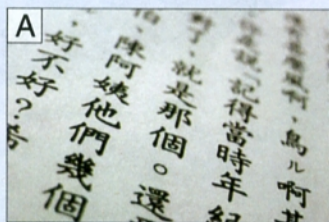 A
風啊，鳥ㄦ啊
說「記得當時年紀
對了，就是那個。還
伯、陳阿姨他們幾個
，好不好？